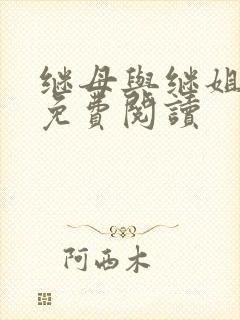 继母與继姐
免費閱讀
阿西木